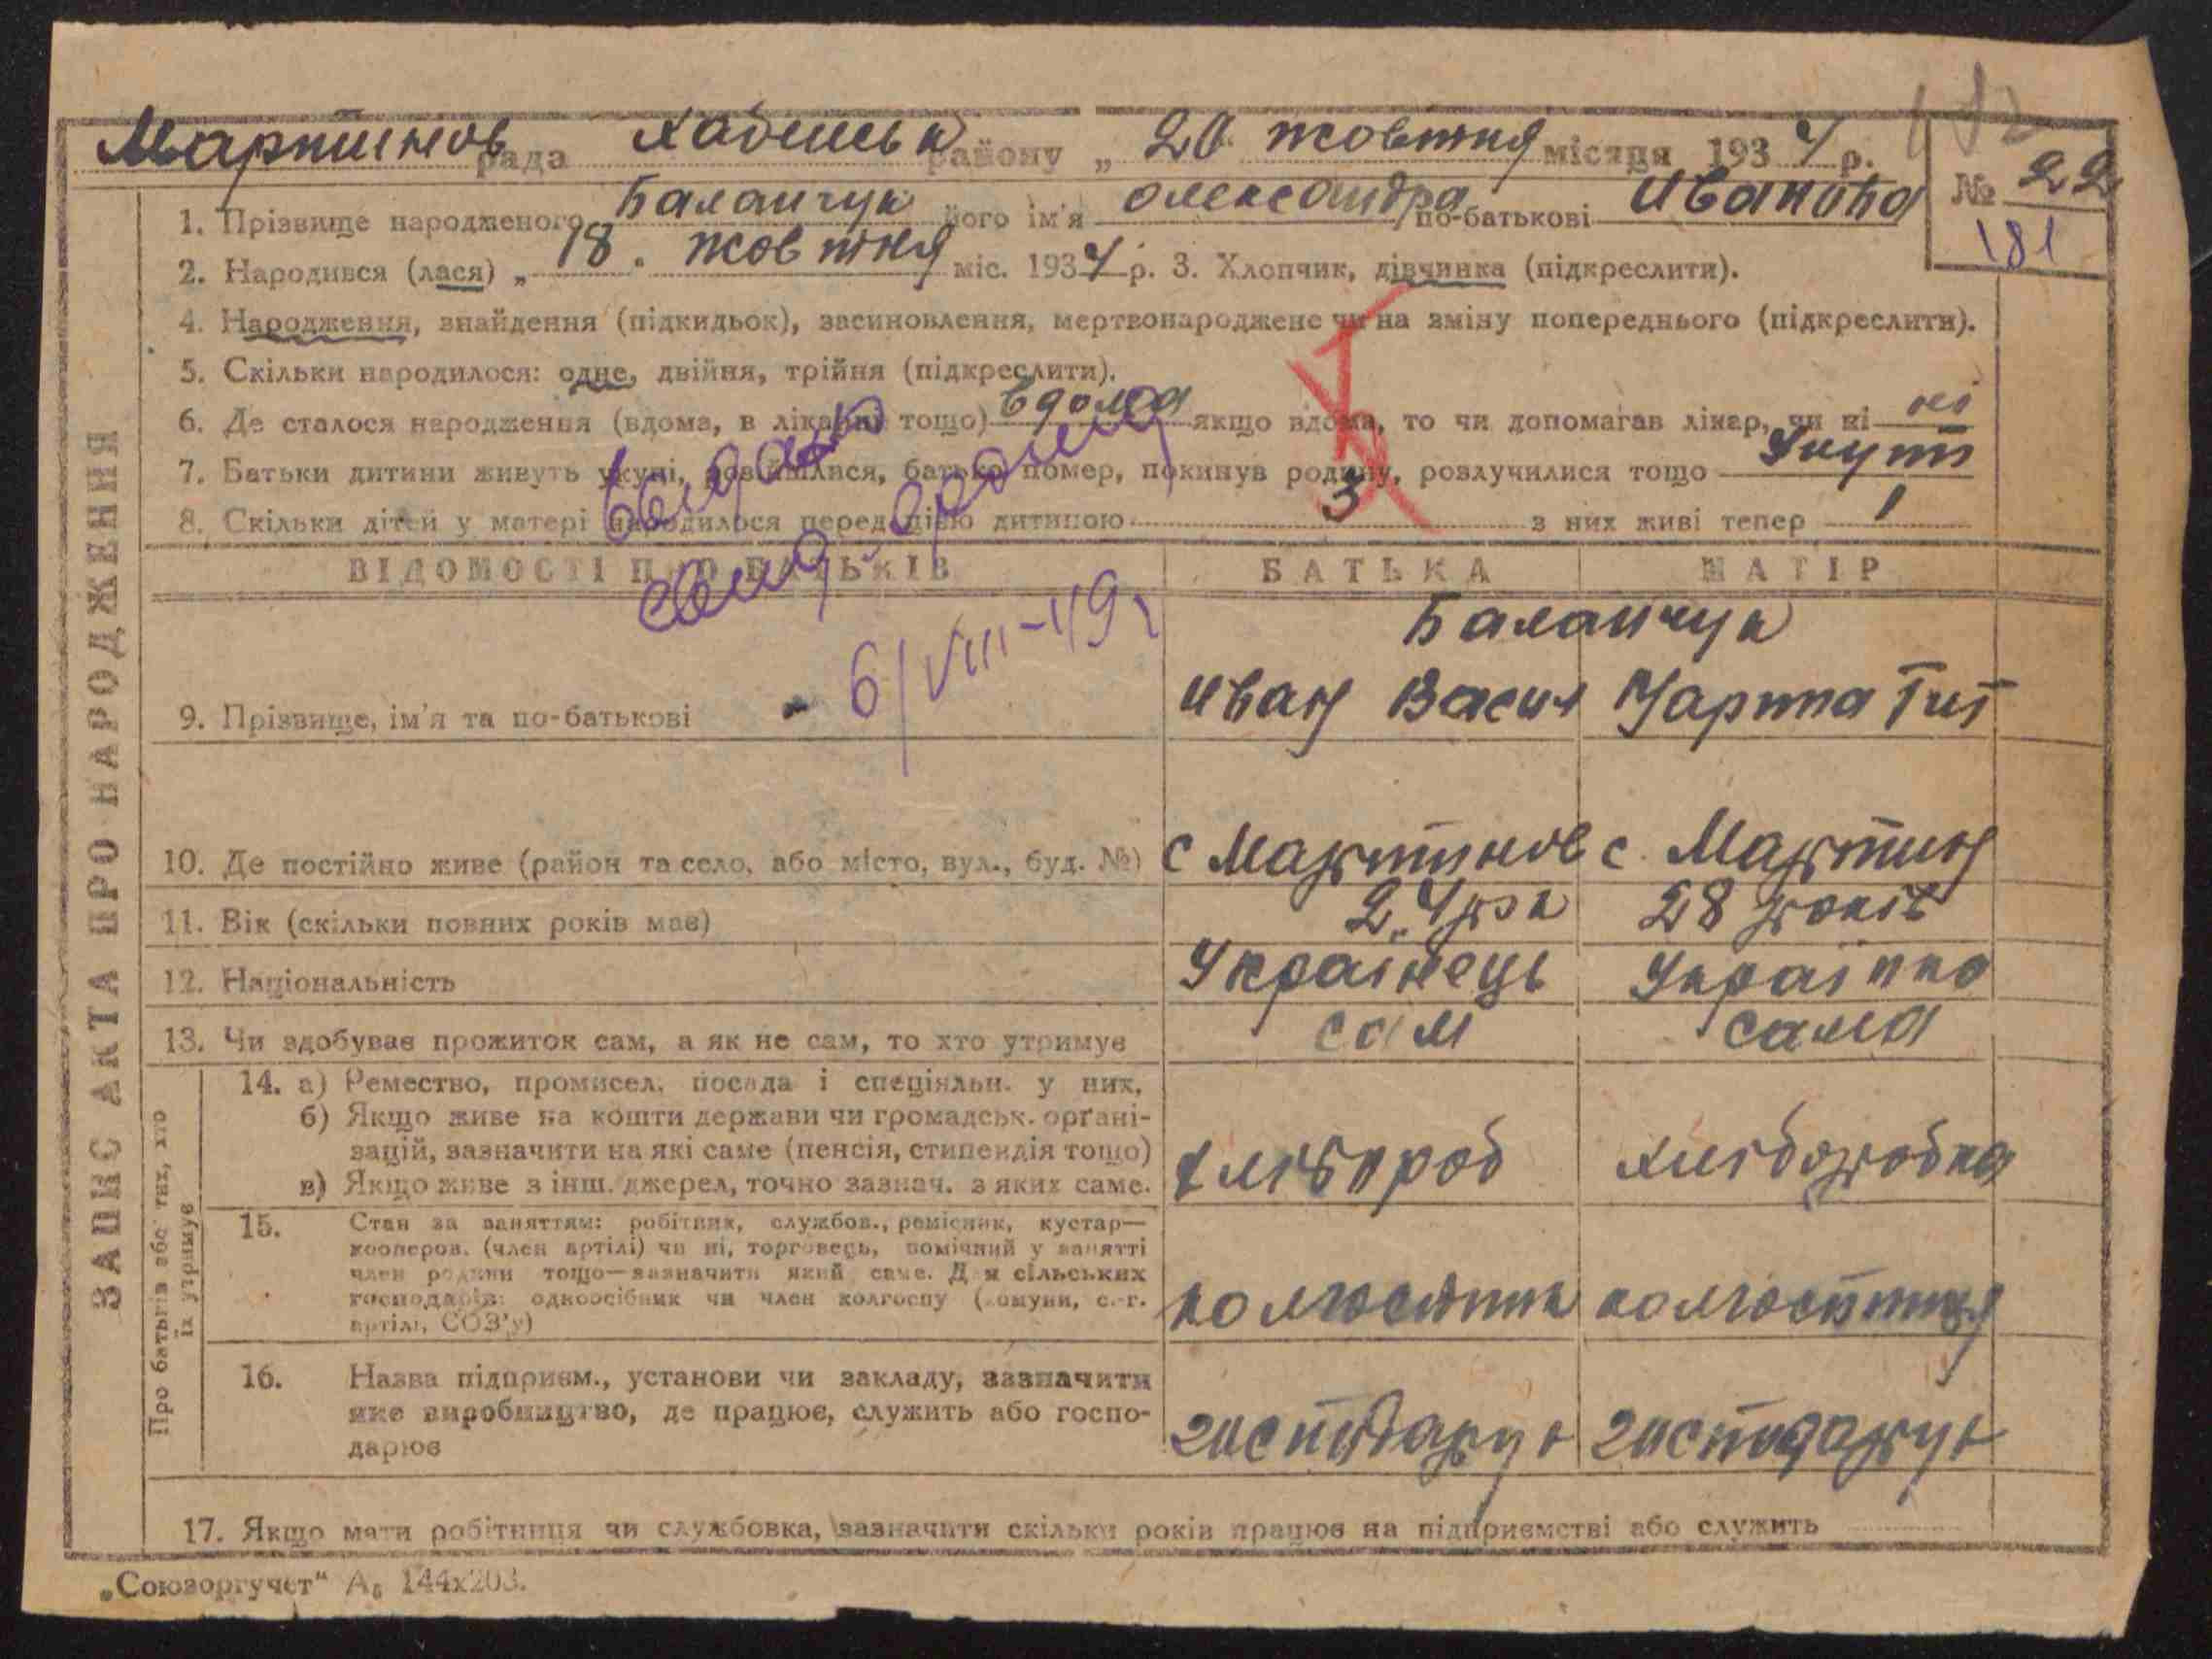 Мартинов рада Хабенськ району „ 20 жовтня місяця 1934 р.
№ 22
181
1. Прізвище народженого Баланчук його ім'я Олександра по-батькові Иванова
2. Народився (лася) „ 18 " жовтня міс. 1934 р. 3. Хлопчик, дівчинка (підкреслити).
4. Народження, знайдення (підкидьок), засиновлення, мертвонароджене чи на зміну попереднього (підкреслити).
5. Скільки народилося: одне, двійня, трійня (підкреслити).
6. Де сталося народження (вдома, в лікарні тощо) вдома якщо вдома, то чи допомагав лікар, чи ні ні
7. Батьки дитини живуть укупі, розійшлися, батько помер, покинув родину, розлучилися тощо Укупі
8. Скільки дітей у матері народилося перед цією дитиною 3 з них живі тепер 1
6/VIII-49
ВІДОМОСТІ ПРО БАТЬКІВ БАТЬКА МАТІР
Баланчук
9. Прізвище, ім'я та по-батькові Иван Васил Марта Тит
10. Де постійно живе (район та село, або місто, вул., буд. №) с Мартинов с. Мартин
11. Вік (скільки повних років має) 24 рок 28 років
12. Національність Українець Українка
13. Чи здобуває прожиток сам, а як не сам, то хто утримує сам сама
14. а) Ремество, промисел, посада і спеціяльн. у них,
б) Якщо живе на кошти держави чи громадськ. орґані-
зацій, зазначити на які саме (пенсія, стипендія тощо) хлібороб хліборобка
в) Якщо живе з інш. джерел, точно зазнач. з яких саме.
15. Стан за заняттям: робітник, службов., ремісник, кустар—
кооперов. (член артілі) чи ні, торговець, помічний у занятті
член родини тощо—зазначити який саме. Для сільських
господарів: одноосібник чи член колгоспу (комуни, с.-г. колгоспник колгоспниця
артілі, СОЗ'у)
16. Назва підприєм., установи чи закладу, зазначити
яке виробництво, де працює, служить або госпо- господарує господарує
дарює
17. Якщо мати робітниця чи службовка, зазначити скільки років працює на підприємстві або служить
ЗАПИС АКТА ПРО НАРОДЖЕННЯ
Про батьків або тих, хто
їх утримує
„Союзоргучет" А5 144х203.